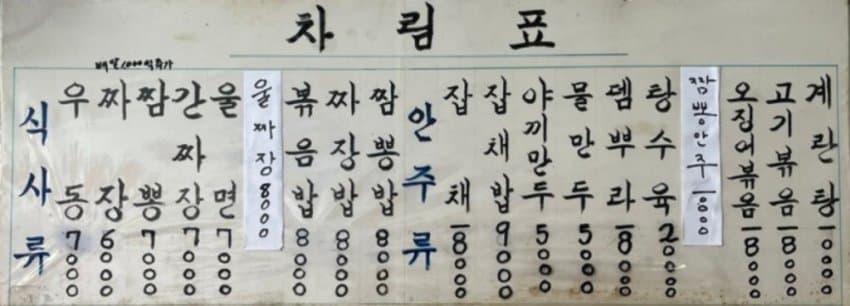 차림표
배달 1000식 추가
식사류
우동 7000
짜장 6000
짬뽕 7000
간짜장 7000
울면 7000
울짜장 8000
볶음밥 8000
짜장밥 8000
짬뽕밥 8000
안주류
잡채 18000
잡채밥 9000
야끼만두 5000
물만두 5000
뎀뿌라 18000
탕수육 20000
짬뽕안주
오징어볶음 18000
고기볶음 18000
계란탕 10000